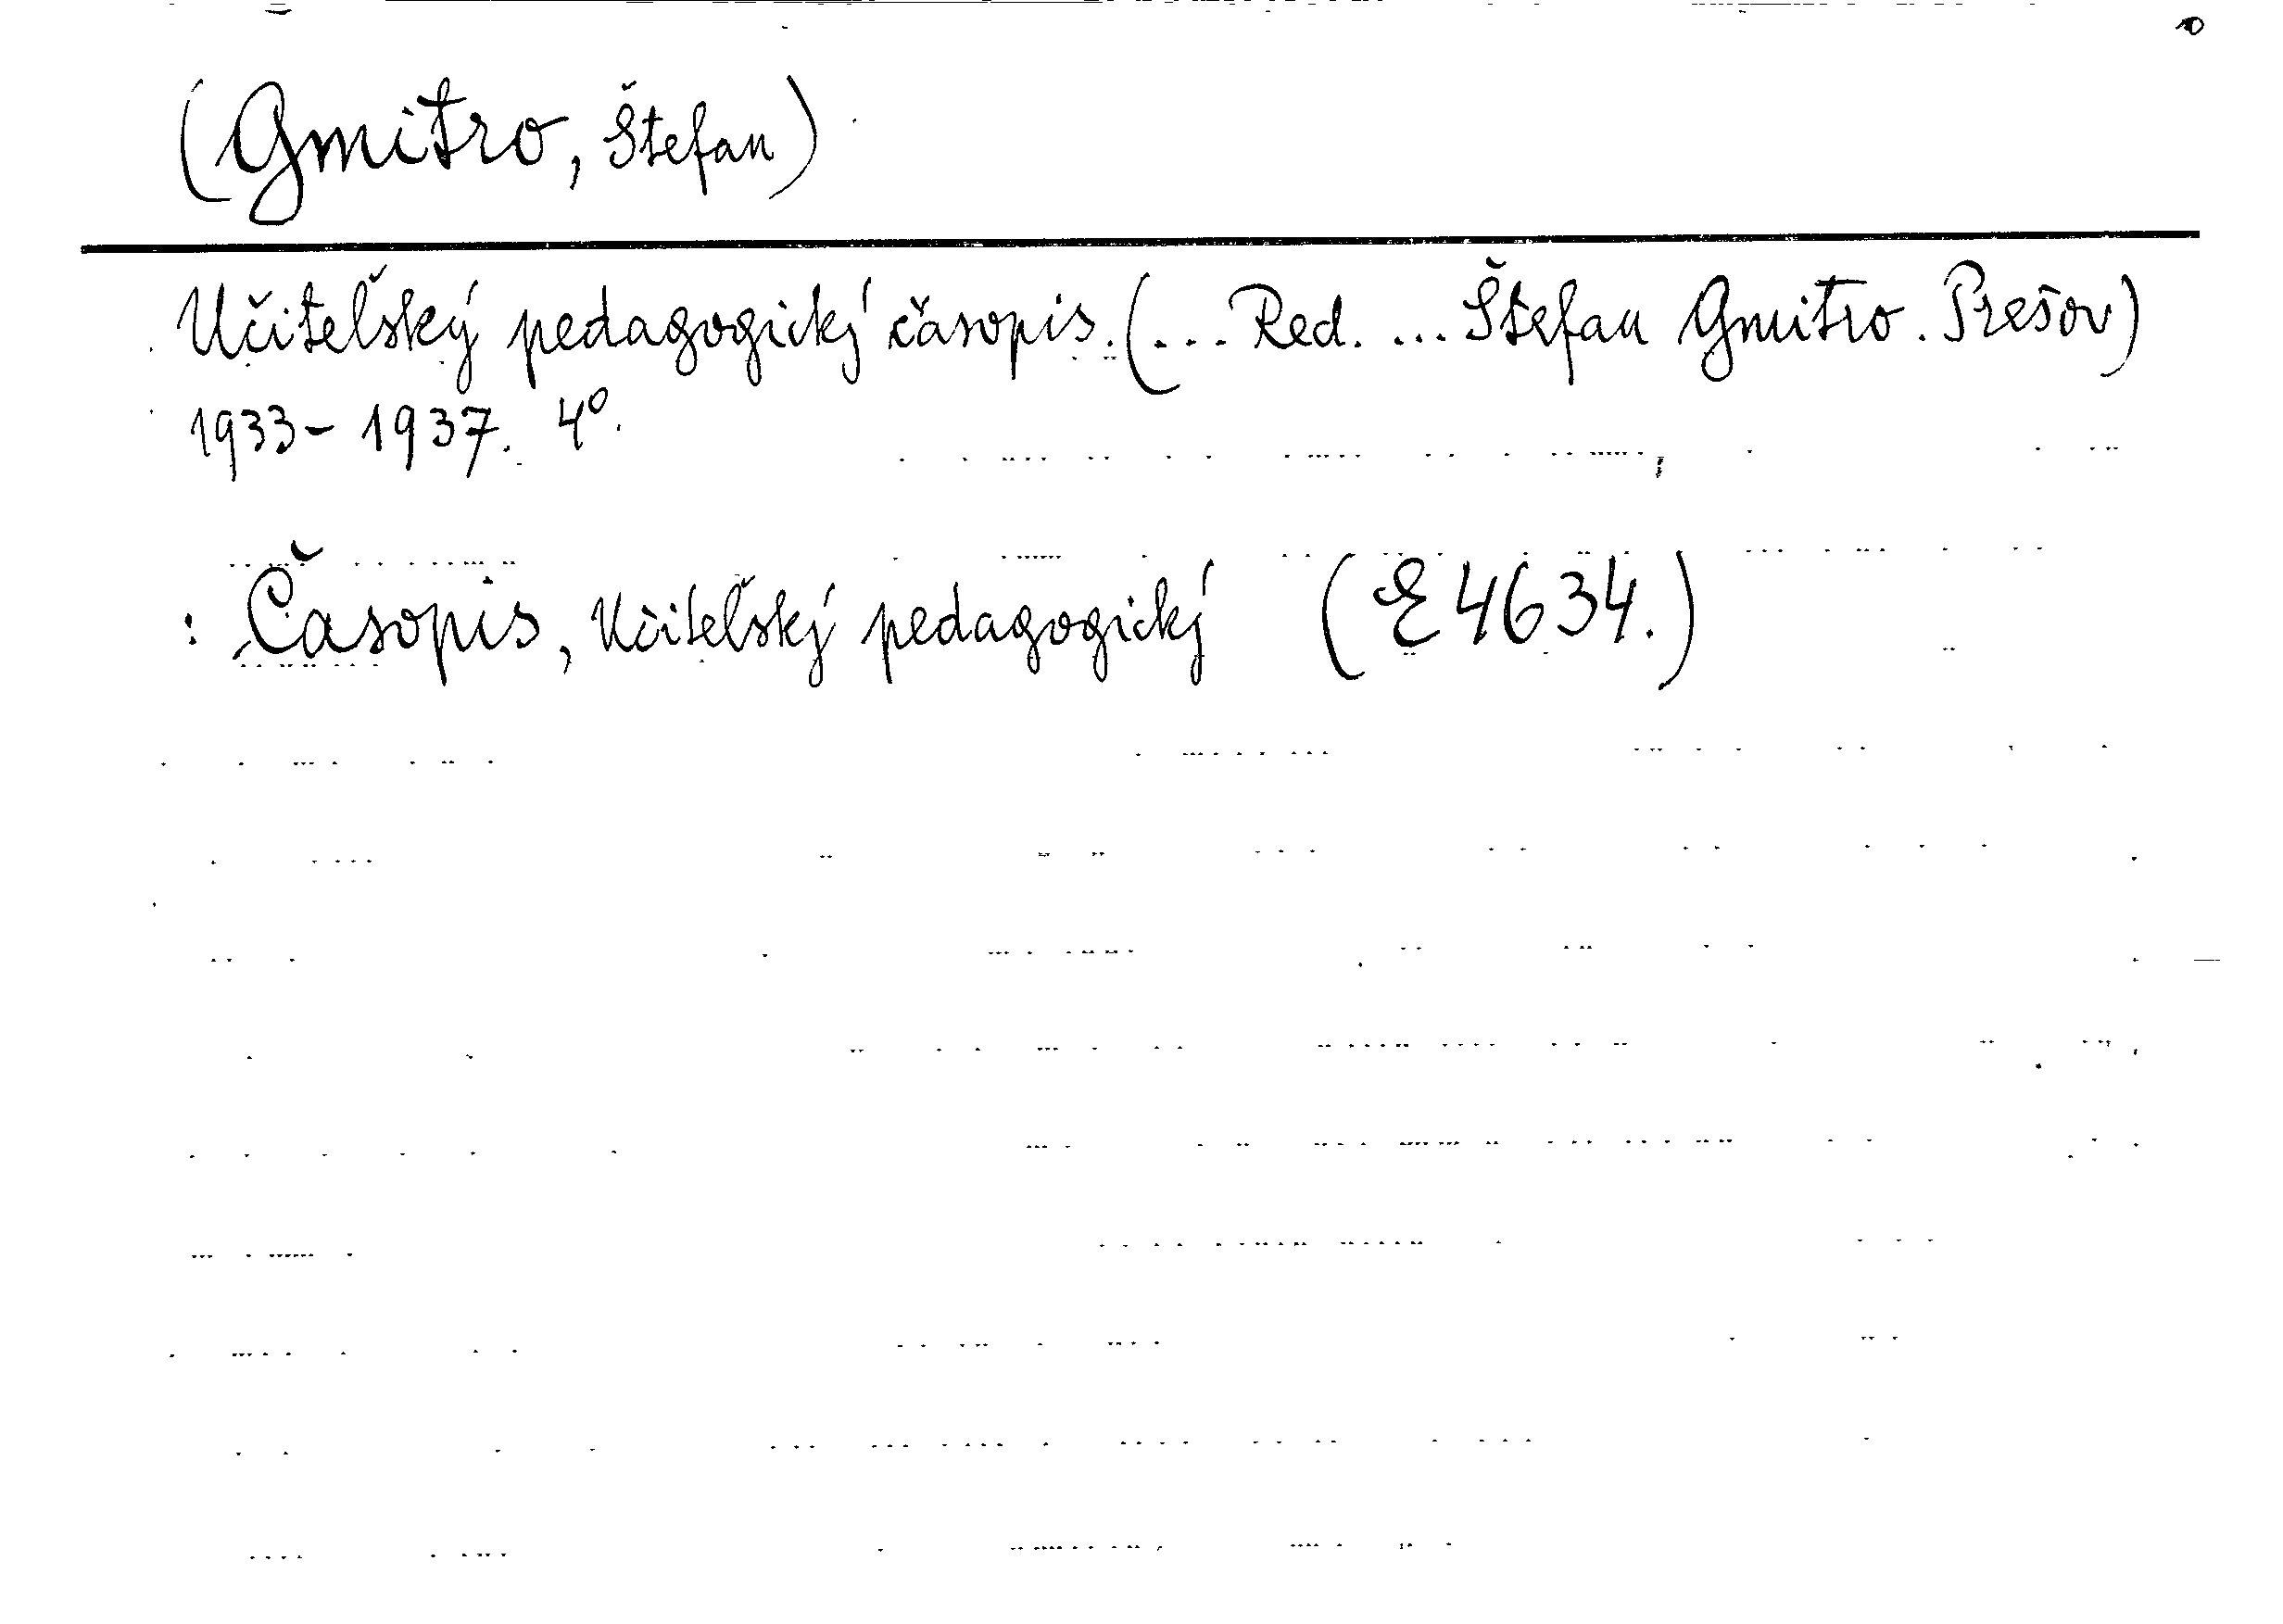 (Gmitro, Štefan)
Učiteľský pedagogický časopis. (... Red. ... Štefan Gmitro. Prešov)
1933 - 1937. 4°.
: Časopis, Učiteľský pedagogický (E 4634.)